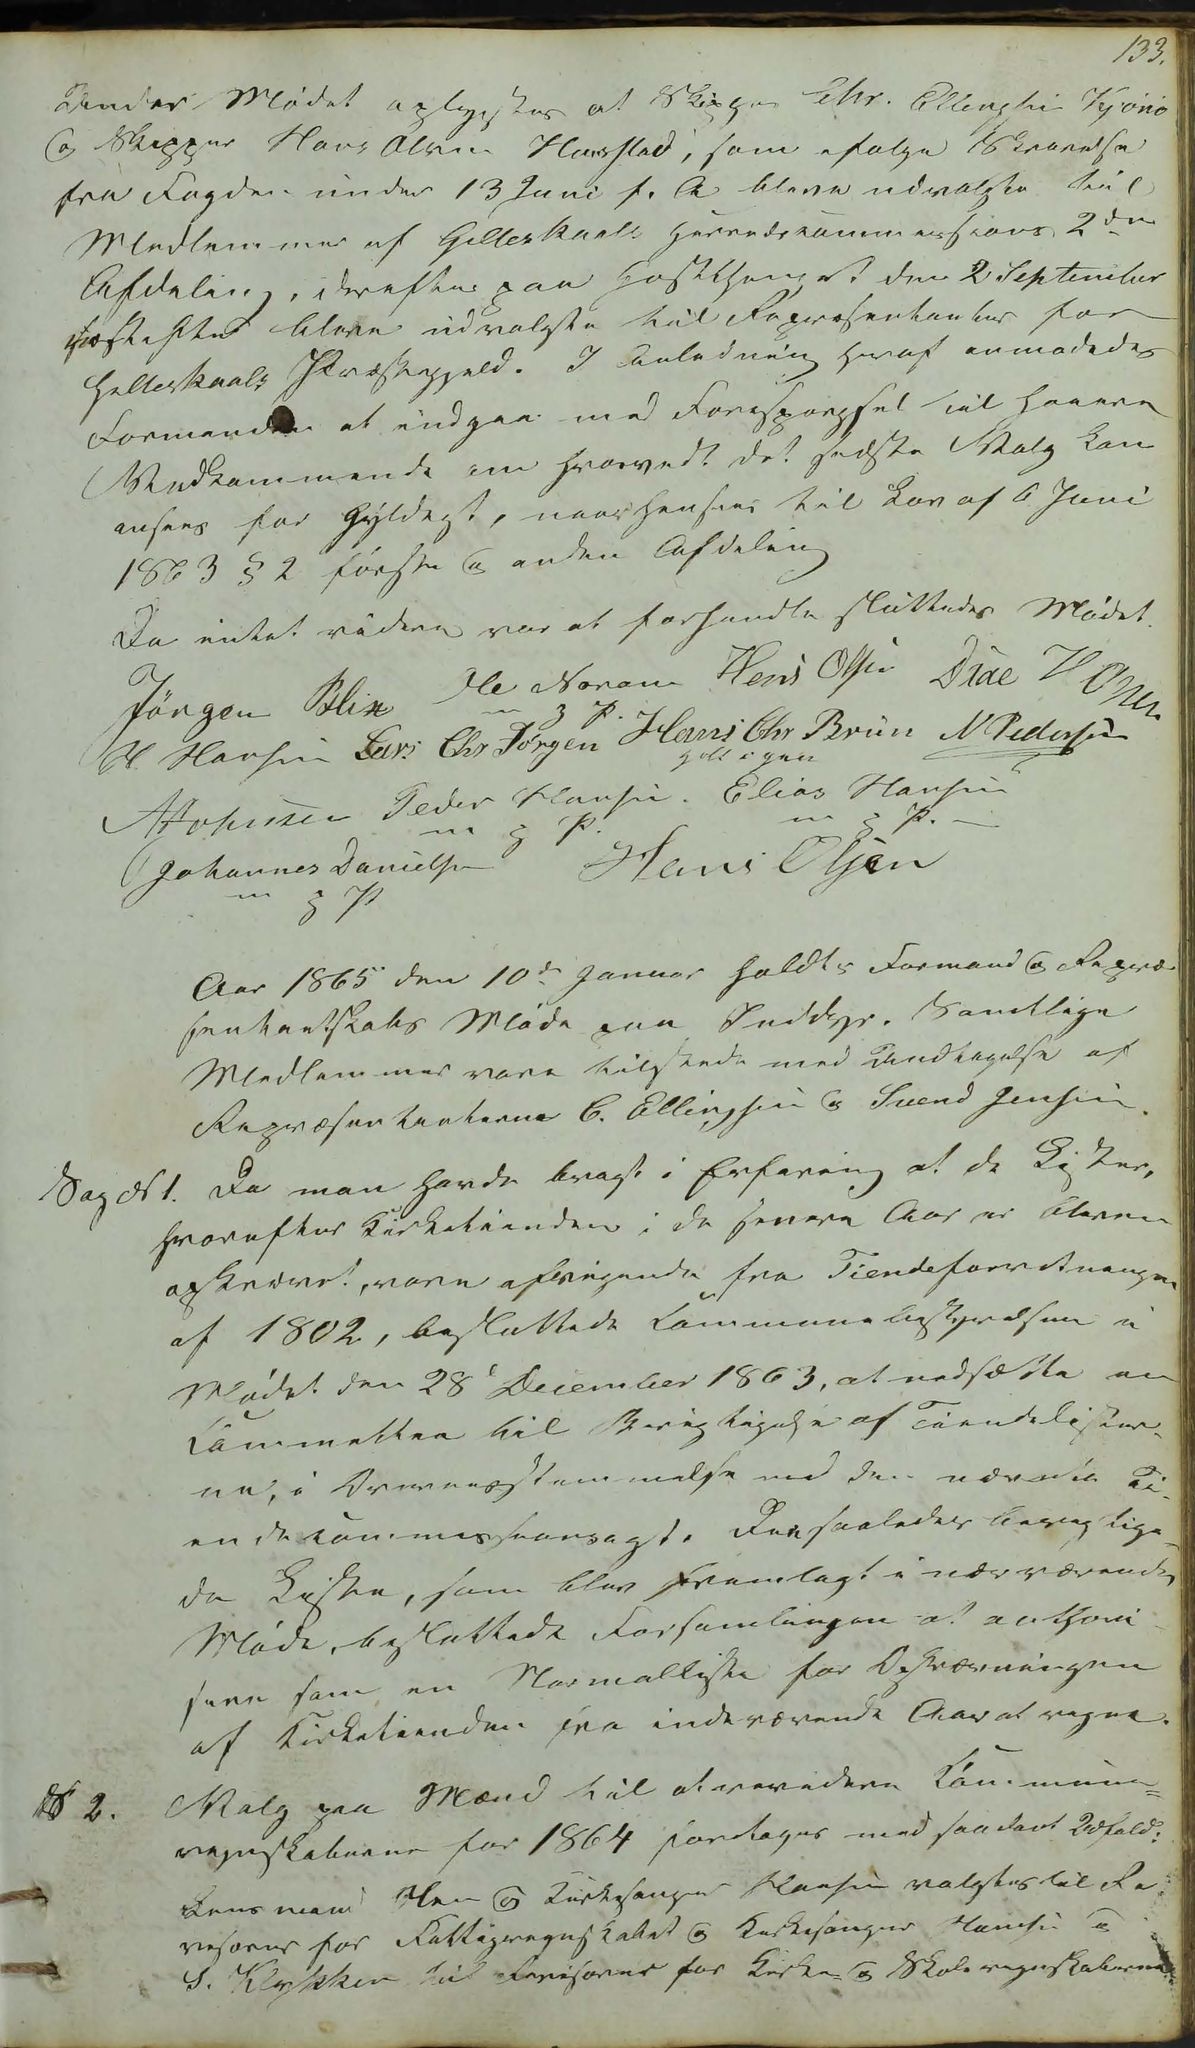 133.
Under Mødet oplystes at Skipper Chr. Ellingsen Kjønø
og Skipper Hans Olsen Harstad, som ifølge Skrivelse
fra Fogden under 13 Juni f. A. bleve udvalgte til
Medlemmer af Gilleskaals Herredskommissions 2den
Afdeling, derefter paa Høstthinget den 2 September
bleve udvalgte til Repræsentanter for
Gilleskaals Præstegjeld. I Anledning heraf anmodedes
Formanden at indgaa med Forespørgsel til høiere
Vedkommende om hvorvidt det sidste Valg kan
ansees for Gyldigt, naar hensees til Lov af 6 Juni
1863 § 2 første og anden Afdeling
Da intet videre var at forhandle sluttedes Mødet.
Jörgen Blix Ole Noram Hans Olsen Diae H Olsen
m g P.
H. Hansen Lars Chr Jörgen Hans Chr Brun N Pedersen
holdt i pen
A Johnsen Peder Hansen. Elias Hansen
m g P. m g P.
Johannes Danielsen Hans Olsen
m g P
Aar 1865 den 10de Januar holdtes Formand og Repræ-
sentantskabs Møde paa Inddyr. Samtlige
Medlemmer vare tilstede med Undtagelse af
Repræsentanterne C. Ellingsen og Svend Jensen.
Sag № 1. Da man havde bragt i Erfaring at de Lister,
hvorefter Kirketienden i de senere Aar er bleven
opkrævet, vare afvigende fra Tiendeforretningen
af 1802, besluttede Communebestyrelsen i
Mødet den 28de December 1863, at nedsætte en
Committee til Berigtigelse af Tiendelister-
ne, i Overensstemmelse med den nævnte Ti-
endekommissionsagt. Den saaledes berigtige-
de Liste, som blev fremlagt i nærværende
Møde, besluttede Forsamlingen at authori-
sere som en Normalliste for Opkrævningen
af Kirketienden fra indeværende Aar at regne.
№ 2. Valg paa Mænd til at revidere Commune-
regnskaberne for 1864 foretoges med saadant Udfald:
Lensmand og Kirkesanger Hansen valgtes til Re-
visorer for Fattigregnskabet og Kirkesanger Hansen og
S. Klykken til Revisorer for Kirke- og Skoleregnskaberne